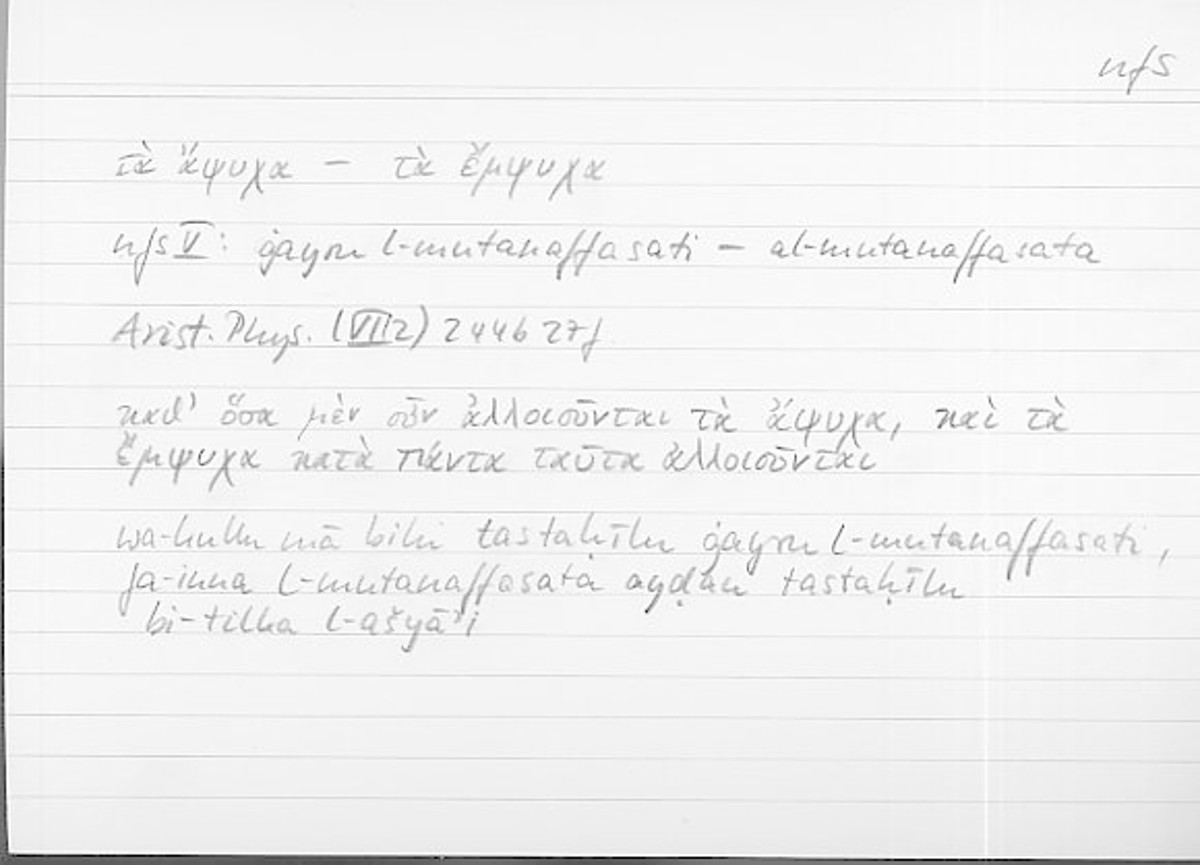 nfs
τὰ ἄψυχα – τὰ ἔμψυχα
nfs V: ġayru l-mutanaffasati – al-mutanaffasata
Arist. Phys. (VII 2) 244b 27f
καθ' ὅσα μὲν οὖν ἀλλοιοῦνται τὰ ἄψυχα, καὶ τὰ
ἔμψυχα κατὰ πάντα ταῦτα ἀλλοιοῦνται
wa-kullu mā bihi tastaḥīlu ġayru l-mutanaffasati,
fa-inna l-mutanaffasata ayḍan tastaḥīlu
bi-tilka l-ašyāʾi